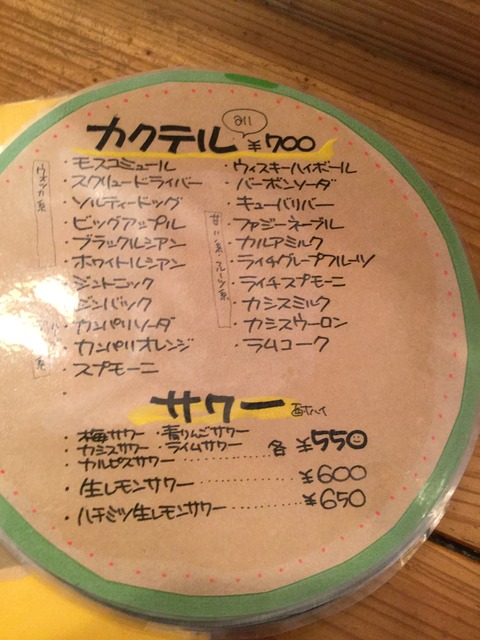 カクテル all ¥700
ウォッカ系
・モスコミュール
・スクリュードライバー
・ソルティードッグ
・ビッグアップル
・ブラックルシアン
・ホワイトルシアン
・ジントニック
・ジンバック
・カンパリソーダ
・カンパリオレンジ
・スプモーニ
・ウィスキーハイボール
・バーボンソーダ
・キューバリバー
甘い系・フルーツ系
・ファジーネーブル
・カルアミルク
・ライチグレープフルーツ
・ライチスプモーニ
・カシスミルク
・カシスウーロン
・ラムコーク
サワー
・梅サワー ・青りんごサワー
・カシスサワー ・ライムサワー
・カルピスサワー ………… 各 ¥550
・生レモンサワー ………… ¥600
・ハチミツ生レモンサワー ………… ¥650